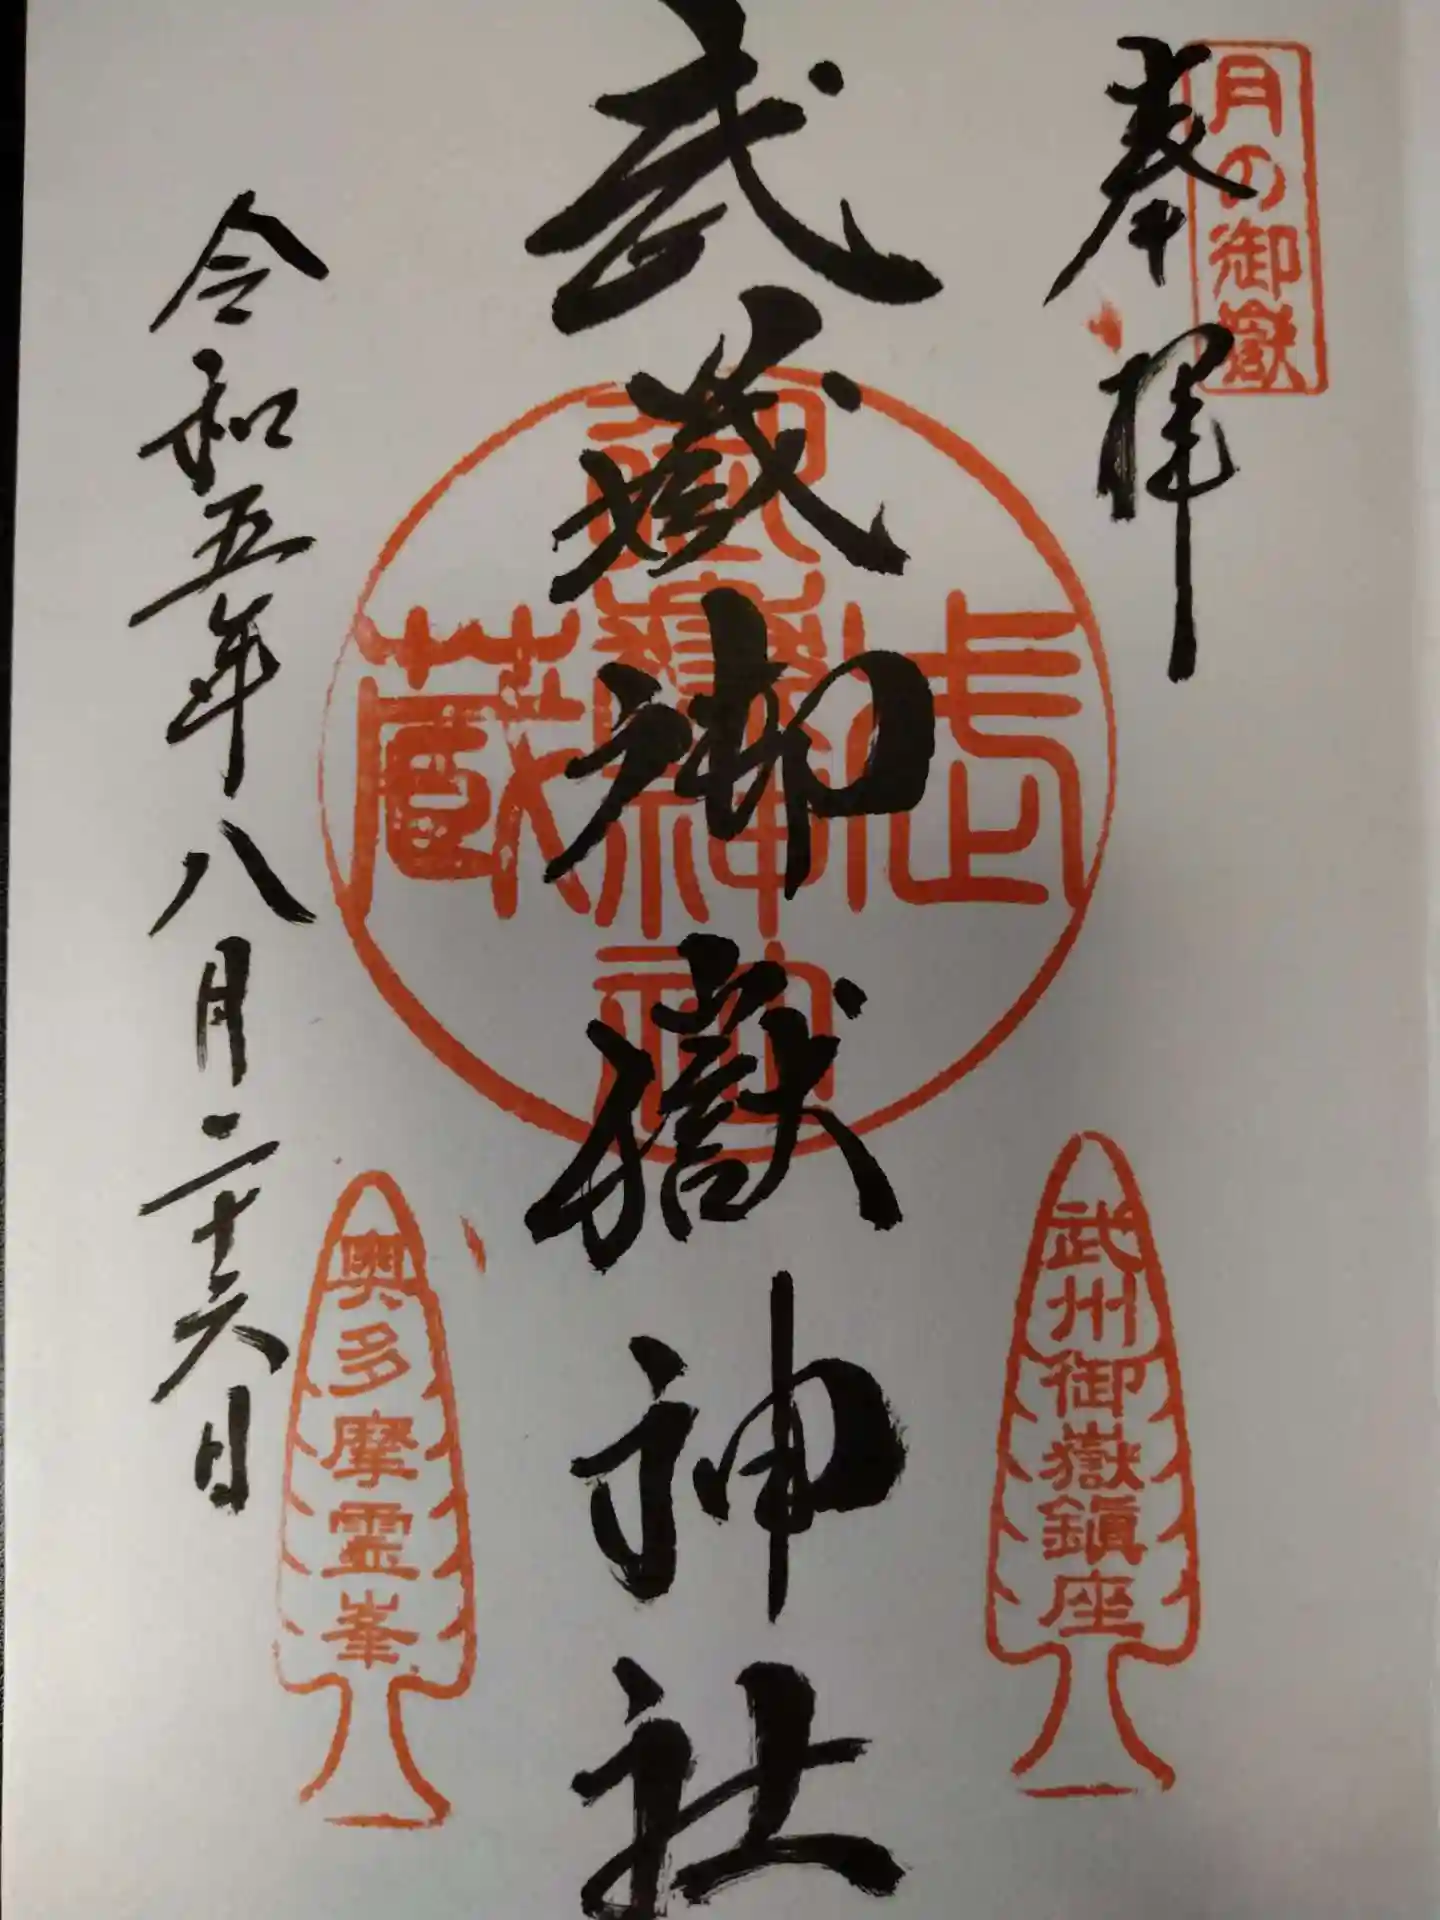 奉拝
月の御嶽
武蔵御嶽神社
武州御嶽鎮座
令和五年八月二十六日
奥多摩霊峯